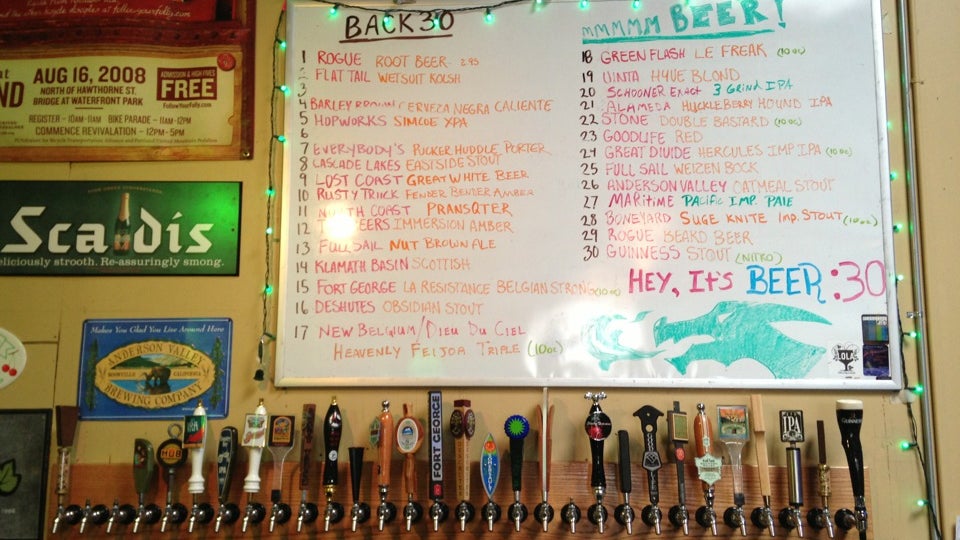 AUG 16, 2008
NORTH OF HAWTHORNE ST.
BRIDGE AT WATERFRONT PARK
ADMISSION & HIGH FIVES
FREE
REGISTER - 10AM-11AM BIKE PARADE - 11AM-12PM
COMMENCE REVIVALATION - 12PM-5PM
Scaldis
eliciously strooth. Re-assuringly smong.
Makes You Glad You Live Around Here
ANDERSON VALLEY
BOONVILLE CALIFORNIA
BREWING COMPANY
BACK 30
1 ROGUE ROOT BEER 2.95
2 FLAT TAIL WETSUIT KOLSH
3
4 BARLEY BROWN CERVEZA NEGRA CALIENTE
5 HOPWORKS SIMCOE XPA
6
7 EVERYBODY'S PUCKER HUDDLE PORTER
8 CASCADE LAKES EASTSIDE STOUT
9 LOST COAST GREAT WHITE BEER
10 RUSTY TRUCK FENDER BENDER AMBER
11 NORTH COAST PRANSQTER
12 IMMERSION AMBER
13 FULL SAIL NUT BROWN ALE
14 KLAMATH BASIN SCOTTISH
15 FORT GEORGE LA RESISTANCE BELGIAN STRONG (10oz)
16 DESHUTES OBSIDIAN STOUT
17 NEW BELGIUM/DIEU DU CIEL
HEAVENLY FEIJOA TRIPLE (10oz)
MMMMM BEER!
18 GREEN FLASH LE FREAK (10oz)
19 UINTA HYVE BLOND
20 SCHOONER EXACT 3 GRIND IPA
21 ALAMEDA HUCKLEBERRY HOUND IPA
22 STONE DOUBLE BASTARD (10oz)
23 GOODLIFE RED
24 GREAT DIVIDE HERCULES IMP. IPA (10oz)
25 FULL SAIL WEIZEN BOCK
26 ANDERSON VALLEY OATMEAL STOUT
27 MARITIME PACIFIC IMP. PALE
28 BONEYARD SUGE KNITE IMP. STOUT (10oz)
29 ROGUE BEARD BEER
30 GUINNESS STOUT (NITRO)
HEY, IT'S BEER:30
LOLA
HUB
FORT GEORGE
IPA
GUINNESS